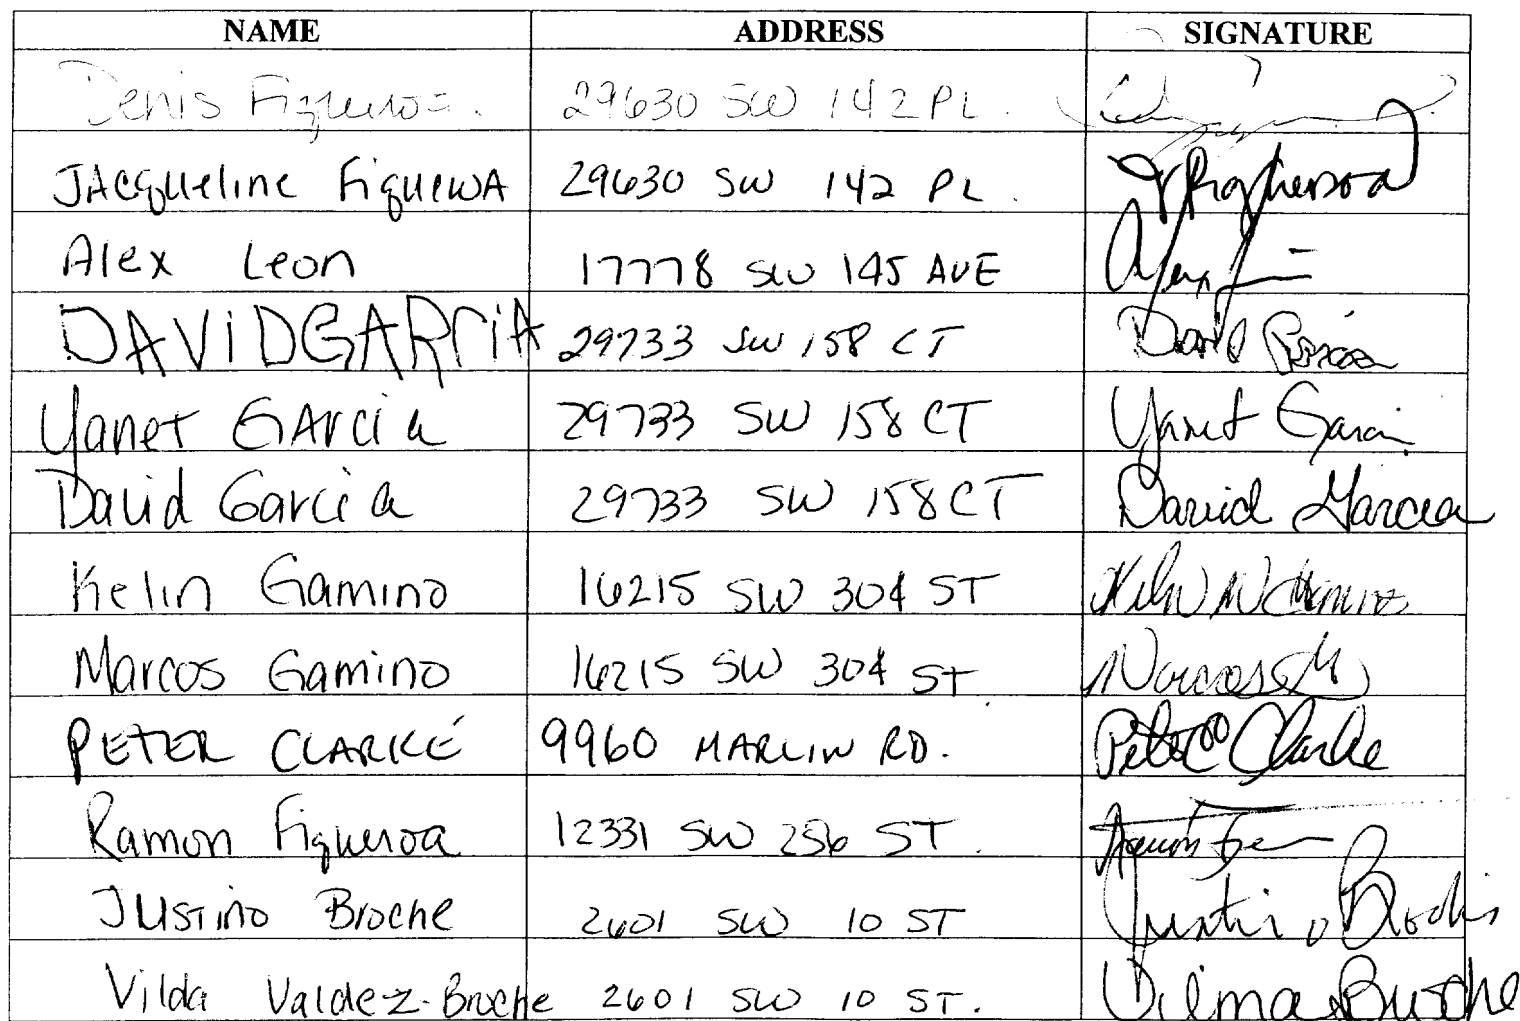 NAME ADDRESS SIGNATURE
Denis Figueroa. 29630 SW 142 PL.
JAcqueline FigueroA 29630 SW 142 PL.
Alex Leon 17778 SW 145 AVE Alex
DAViDGARCiA 29733 SW 158 CT David
Yanet GArcia 29733 SW 158 CT Yanet Garcia
David Garcia 29733 SW 158 CT David Garcia
Kelin Gamino 16215 SW 304 ST
Marcos Gamino 16215 SW 304 ST. Marcos
PETER CLARKE 9960 MARLIN RD. Peter Clarke
Ramon Figueroa 12331 SW 256 ST. Ramon
Justino Broche 2601 SW 10 ST Justino Broche
Vilda Valdez-Broche 2601 SW 10 ST. Vilma Broche